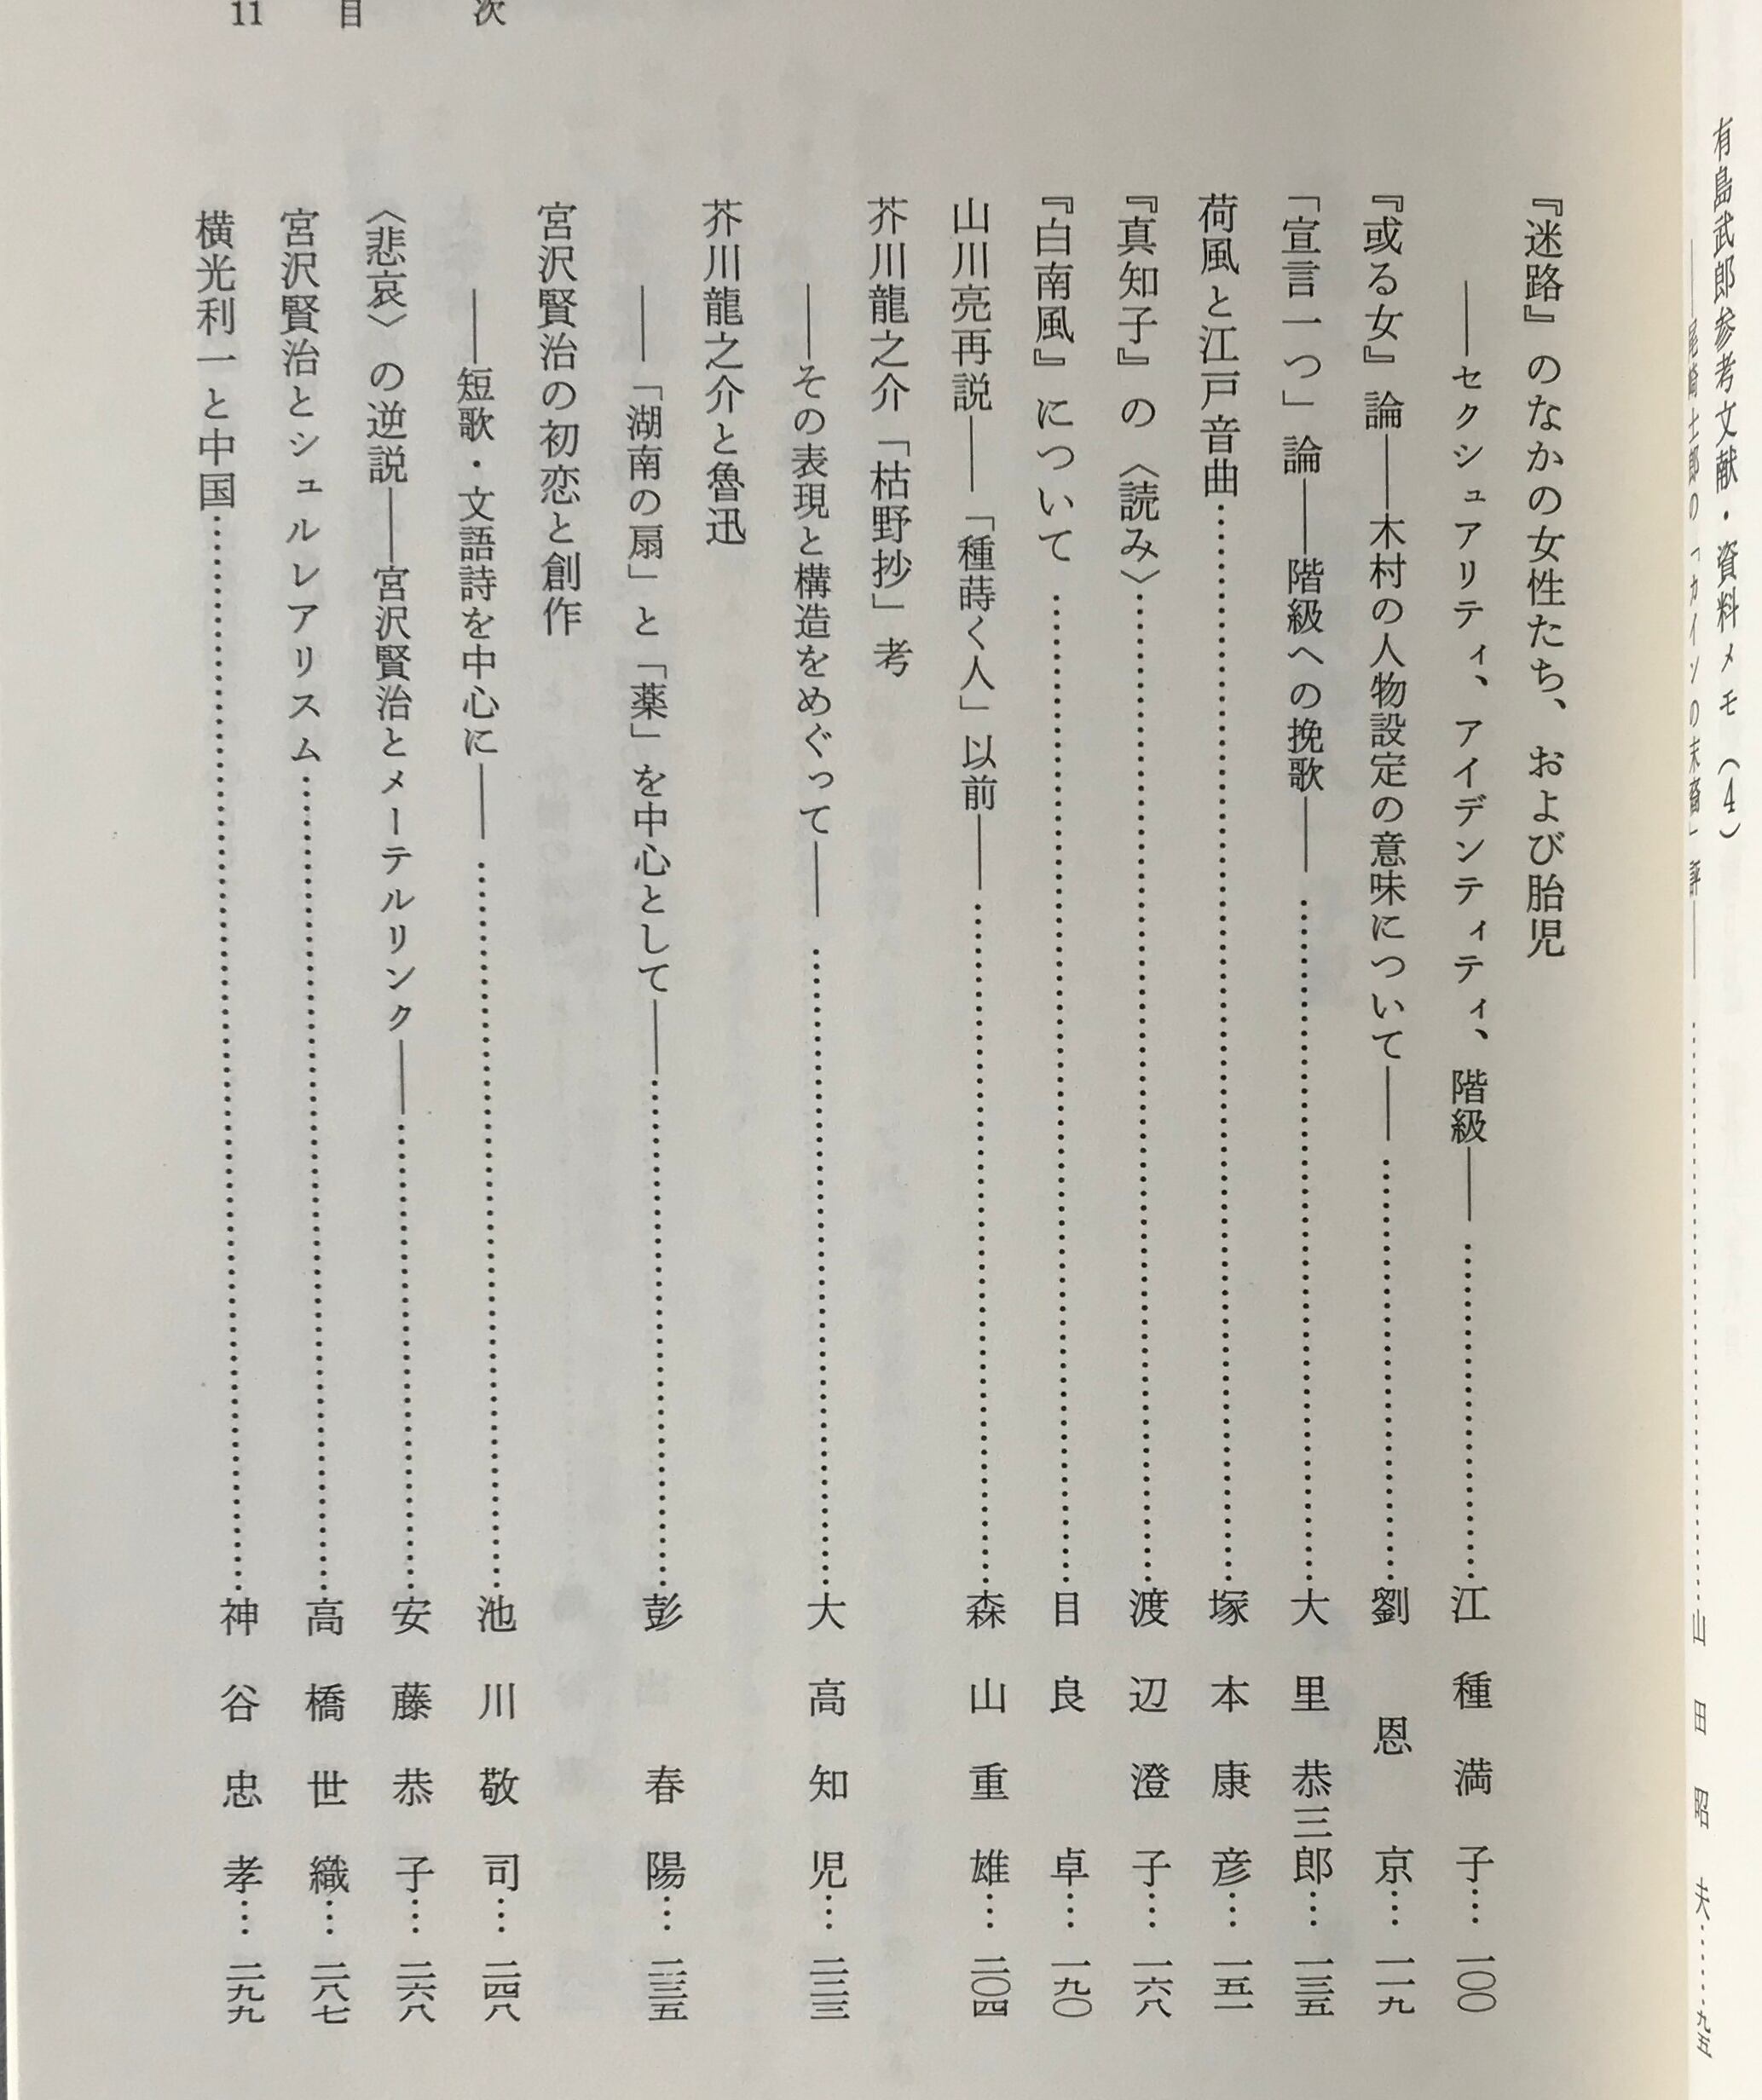 有島武郎参考文献・資料メモ（4）
――尾崎士郎の「カインの末裔」評――……………山田昭夫……九五
11 目次
『迷路』のなかの女性たち、および胎児
――セクシュアリティ、アイデンティティ、階級――……………江種満子…一〇〇
『或る女』論――木村の人物設定の意味について――……………劉恩京…一一九
「宣言一つ」論――階級への挽歌――……………大里恭三郎…一三五
荷風と江戸音曲……………塚本康彦…一五一
『真知子』の〈読み〉……………渡辺澄子…一六八
『白南風』について……………目良卓…一九〇
山川亮再説――「種蒔く人」以前――……………森山重雄…二〇四
芥川龍之介「枯野抄」考
――その表現と構造をめぐって――……………大高知児…二二三
芥川龍之介と魯迅
――「湖南の扇」と「薬」を中心として――……………彭春陽…二三五
宮沢賢治の初恋と創作
――短歌・文語詩を中心に――……………池川敬司…二四八
〈悲哀〉の逆説――宮沢賢治とメーテルリンク――……………安藤恭子…二六八
宮沢賢治とシュルレアリスム……………高橋世織…二八七
横光利一と中国……………神谷忠孝…二九九